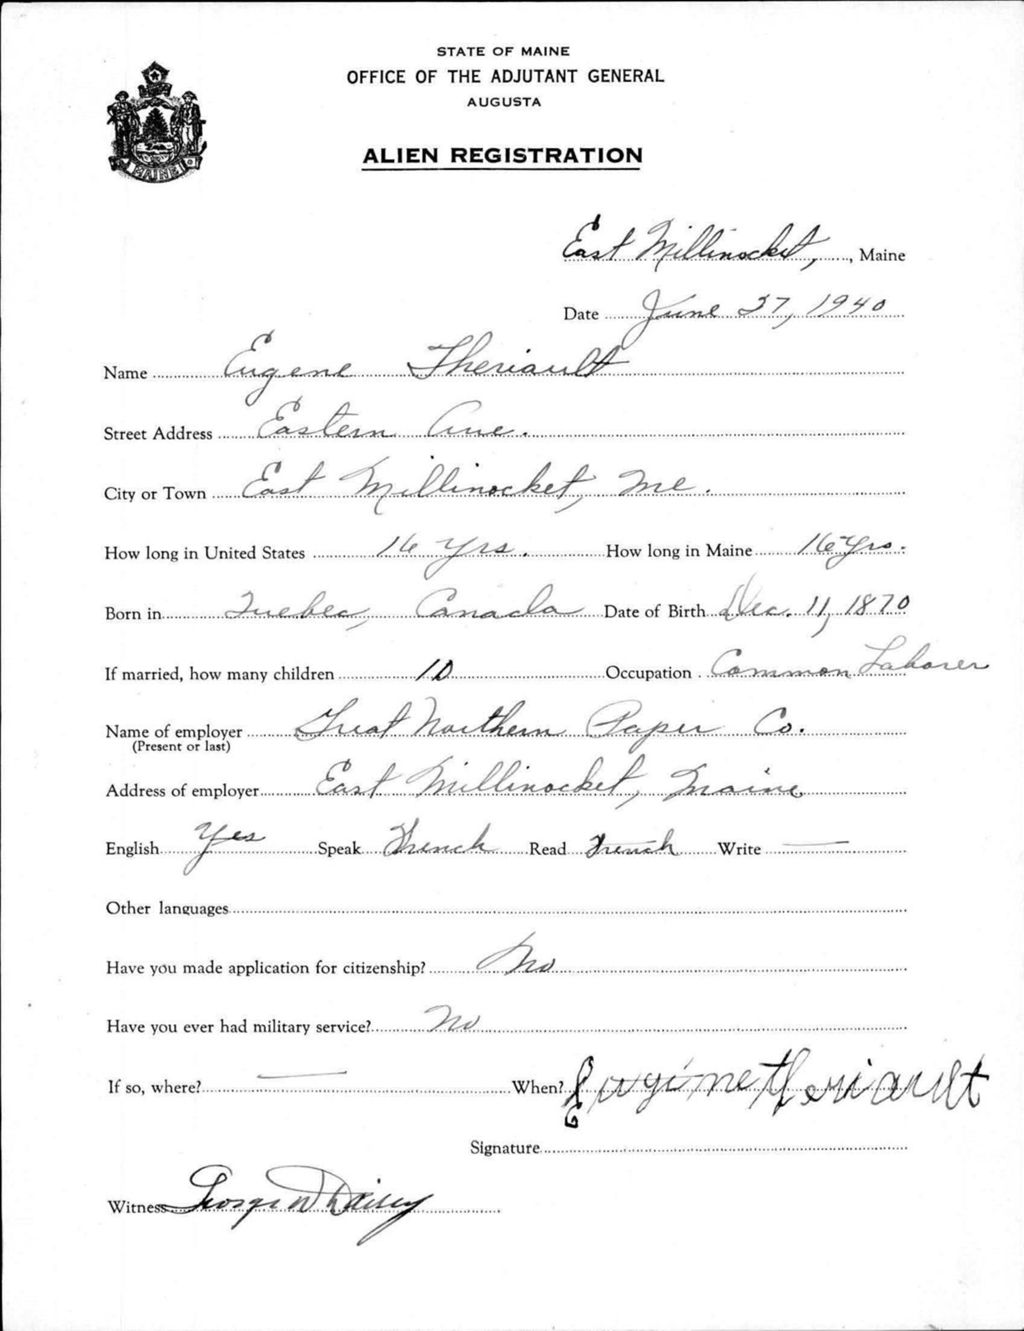 STATE OF MAINE
OFFICE OF THE ADJUTANT GENERAL
AUGUSTA
ALIEN REGISTRATION
MAINE
East Millinocket, , Maine
Date June 27, 1940
Name Eugene Theriault
Street Address Eastern Ave.
City or Town East Millinocket, Me.
How long in United States 16 yrs. How long in Maine 16 yrs.
Born in Quebec, Canada Date of Birth Dec. 11, 1870
If married, how many children 10 Occupation Common Laborer
Name of employer Great Northern Paper Co.
(Present or last)
Address of employer East Millinocket, Maine
English Yes Speak French Read French Write —
Other languages
Have you made application for citizenship? No
Have you ever had military service? No
If so, where? — When? Eugene theriault
Signature
Witness George W Daisey